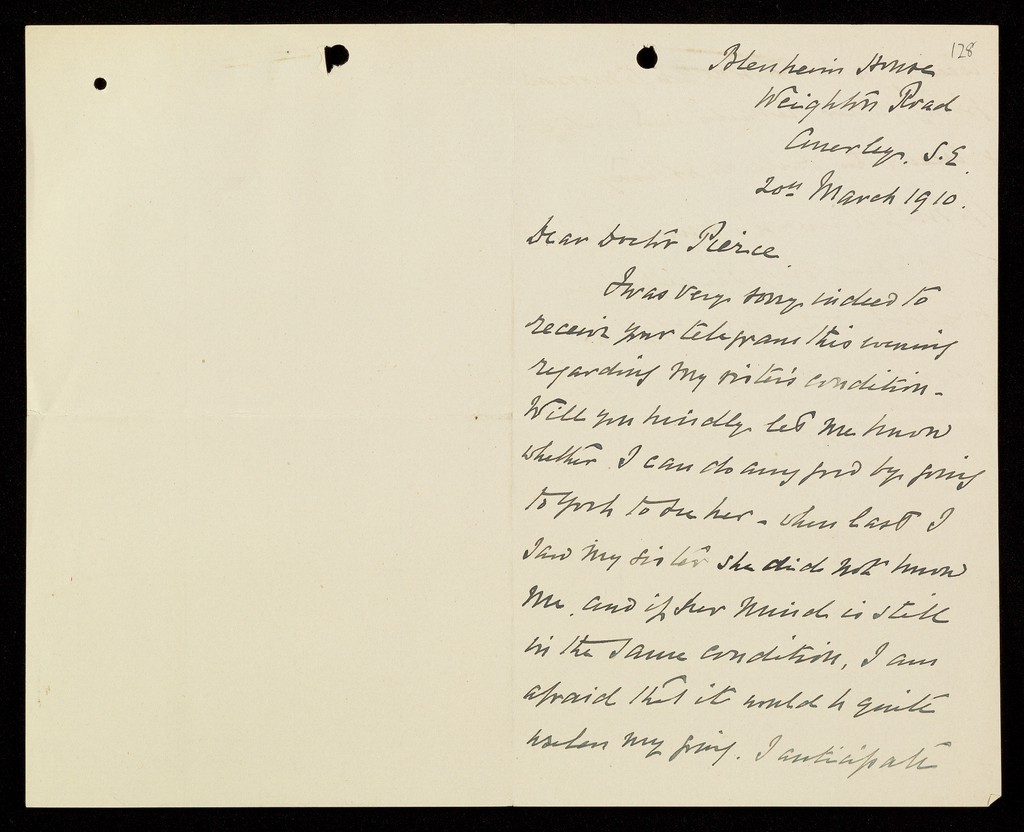 128
Blenheim House
Weighton Road
Anerley. S.E.
20th March 1910.
Dear Doctor Pierce.
I was very sorry indeed to
receive your telegram this evening
regarding my sister's condition -
Will you kindly let me know
whether I can do any good by going
to York to see her - when last I
saw my sister she did not know
me, and if her mind is still
in the same condition, I am
afraid that it would be quite
useless my going. I anticipate